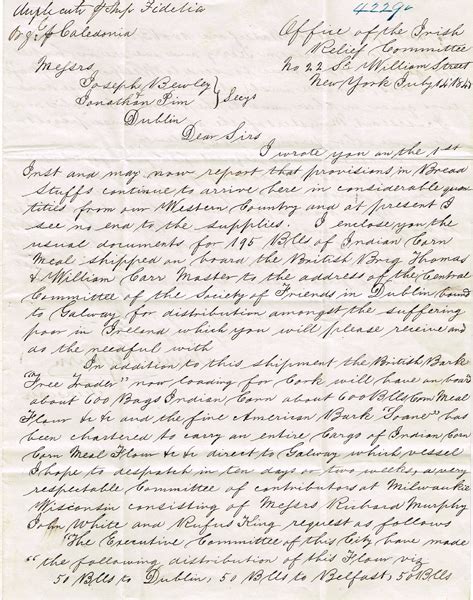 Duplicate p Ship Fidelia
Orgl p Caledonia
42290
Office of the Irish
Relief Committee
No 22 So William Street
New York July 14 1847
Messrs
Joseph Bewley
& Jonathan Pim } Secys
Dublin
Dear Sirs
I wrote you on the 1st
Inst and may now report that provisions in Bread
Stuffs continue to arrive here in considerable quan
tities from our Western Country and at present I
see no end to the supplies. I enclose you the
usual documents for 195 Blls of Indian Corn
Meal shipped on board the British Brig Thomas
& William Carr Master to the address of the Central
Committee of the Society of Friends in Dublin bound
to Galway for distribution amongst the suffering
poor in Ireland which you will please receive and
do the needful with
In addition to this shipment the British Bark
"Free Trader" now loading for Cork will have on board
about 600 Bags Indian Corn about 600 Blls Corn Meal
Flour &c &c and the fine American Bark
has
been chartered to carry an entire Cargo of Indian Corn
Corn Meal Flour &c &c direct to Galway which vessel
I hope to despatch in ten days or two weeks, a very
respectable Committee of contributors at Milwaukie
Wisconsin consisting of Messrs Richard Murphy
John White and Rufus King request as follows
"The Executive Committee of this City have made
"the following distribution of this Flour viz
50 Blls to Dublin, 50 Blls to Belfast, 50 Blls